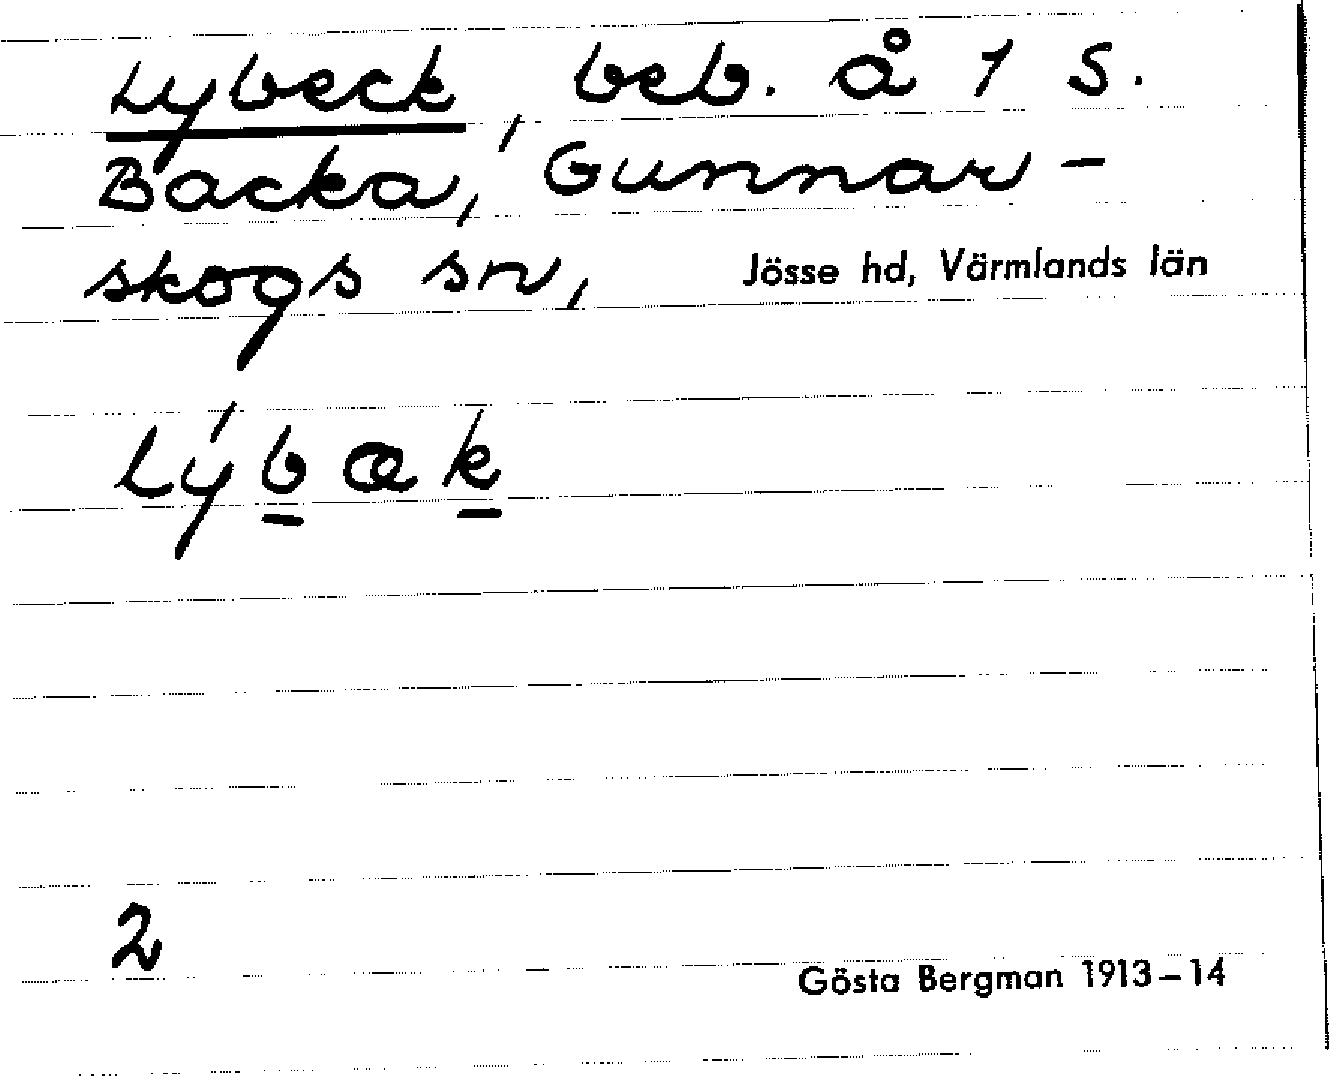 Lybeck, beb. å 1 S.
Backa, Gunnar-
skogs sn, Jösse hd, Värmlands län
Lýbæk
2
Gösta Bergman 1913–14